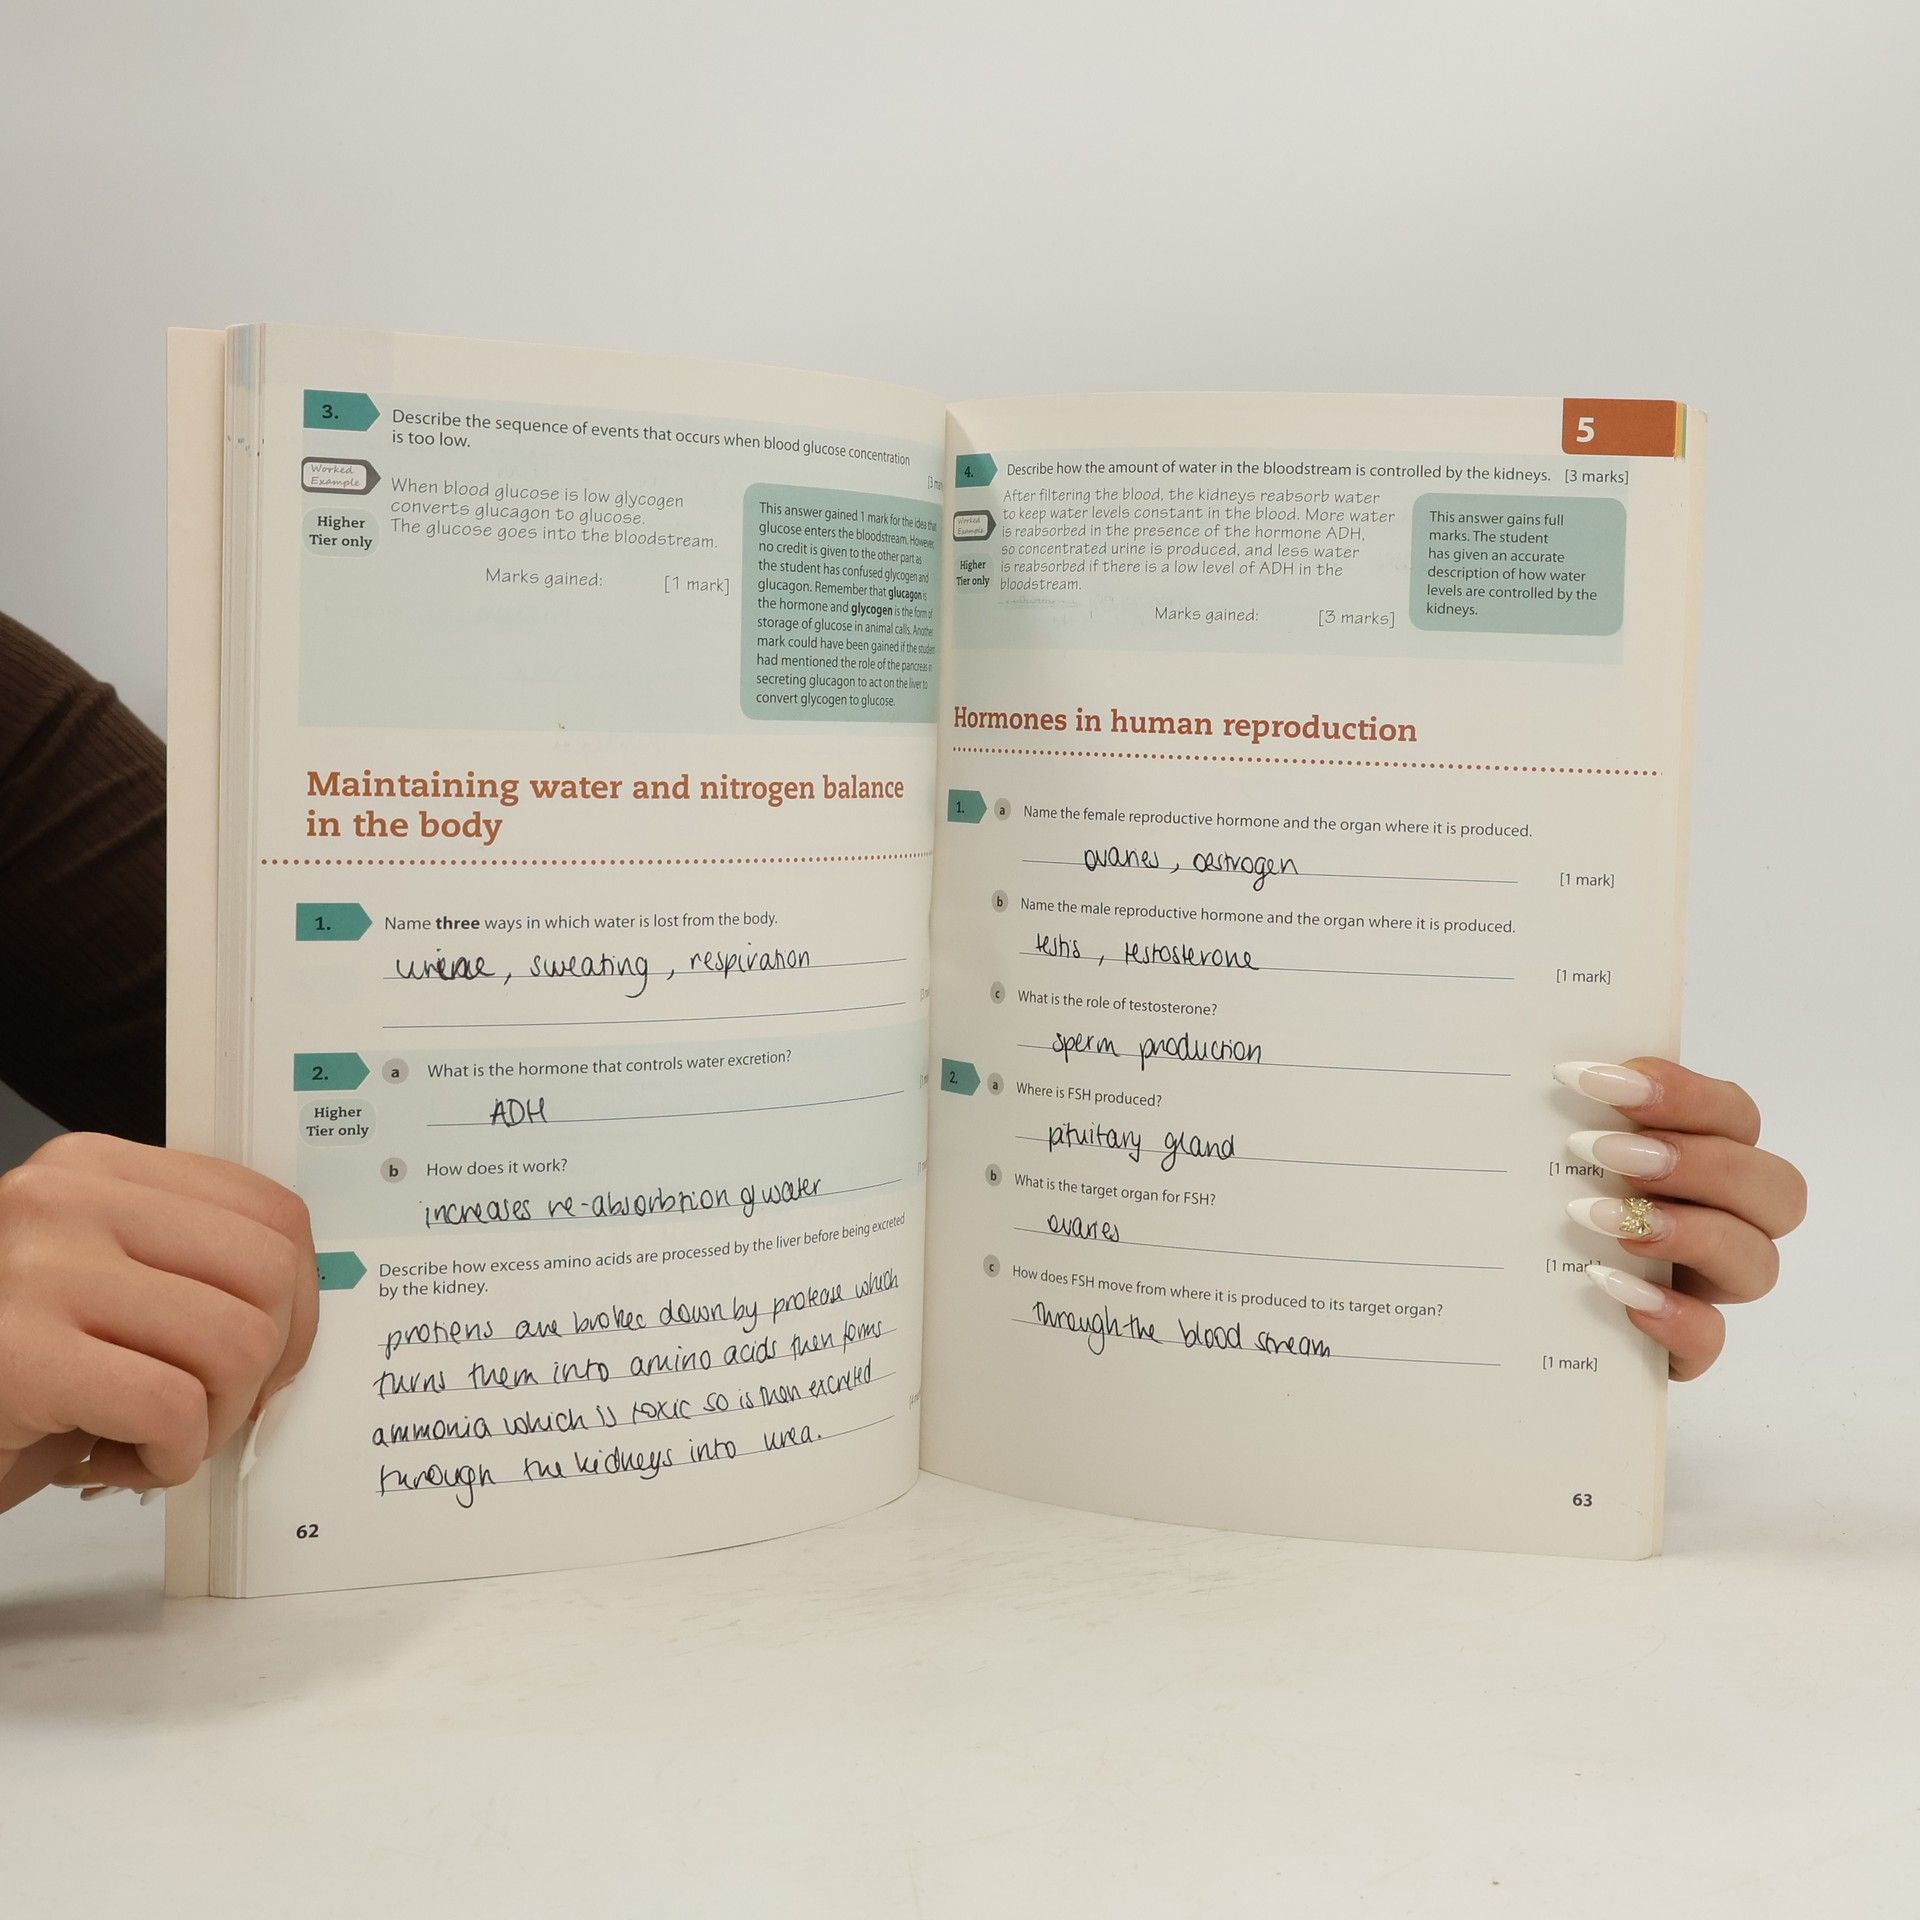 3.
Describe the sequence of events that occurs when blood glucose concentration
is too low.
Worked
Example
Higher
Tier only
When blood glucose is low glycogen
converts glucagon to glucose.
The glucose goes into the bloodstream.
Marks gained: [1 mark]
This answer gained 1 mark for the idea that
glucose enters the bloodstream. However,
no credit is given to the other part as
the student has confused glycogen and
glucagon. Remember that glucagon is
the hormone and glycogen is the form of
storage of glucose in animal calls. Another
mark could have been gained if the student
had mentioned the role of the pancreas in
secreting glucagon to act on the liver to
convert glycogen to glucose.
Maintaining water and nitrogen balance
in the body
1.
Name three ways in which water is lost from the body.
urine, sweating, respiration
2.
Higher
Tier only
a What is the hormone that controls water excretion?
ADH
b How does it work?
increases re-absorbtion of water
Describe how excess amino acids are processed by the liver before being excreted
by the kidney.
protiens are broken down by protease which
turns them into amino acids then forms
ammonia which is toxic so is then excreted
through the kidneys into urea.
62
5
4.
Describe how the amount of water in the bloodstream is controlled by the kidneys. [3 marks]
Worked
Example
Higher
Tier only
After filtering the blood, the kidneys reabsorb water
to keep water levels constant in the blood. More water
is reabsorbed in the presence of the hormone ADH,
so concentrated urine is produced, and less water
is reabsorbed if there is a low level of ADH in the
bloodstream.
Marks gained: [3 marks]
This answer gains full
marks. The student
has given an accurate
description of how water
levels are controlled by the
kidneys.
Hormones in human reproduction
1.
a Name the female reproductive hormone and the organ where it is produced.
ovaries, oestrogen
[1 mark]
b Name the male reproductive hormone and the organ where it is produced.
testis, testosterone
[1 mark]
c What is the role of testosterone?
sperm production
2.
a Where is FSH produced?
pituitary gland
[1 mark]
b What is the target organ for FSH?
ovaries
[1 mar
c How does FSH move from where it is produced to its target organ?
through the blood stream
[1 mark]
63